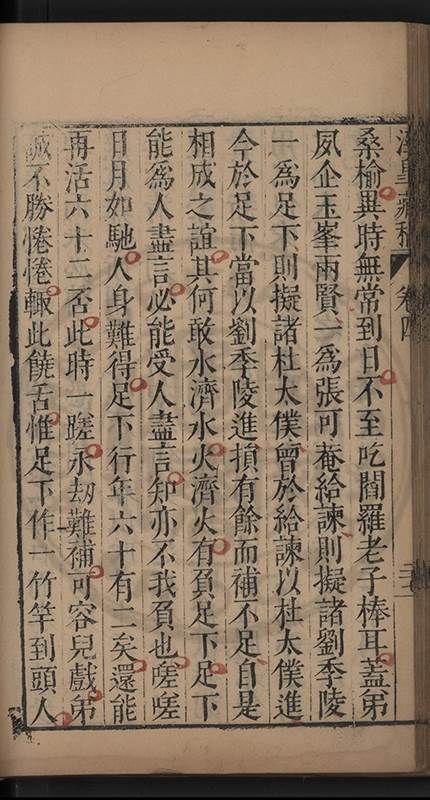 卷四
桑榆異時無常到日不至吃閻羅老子棒耳蓋弟
夙企玉峯兩賢一為張可菴給諫則擬諸劉季陵
一為足下則擬諸杜太僕曾於給諫以杜太僕進
今於足下當以劉季陵進損有餘而補不足自是
相成之誼其何敢水濟水火濟火有負足下足下
能為人盡言必能受人盡言知亦不我負也嗟嗟
日月如馳人身難得足下行年六十有二矣還能
再活六十二否此時一蹉永劫難補可容兒戲弟
誠不勝惓惓輙此饒舌惟足下作一竹竿到頭人